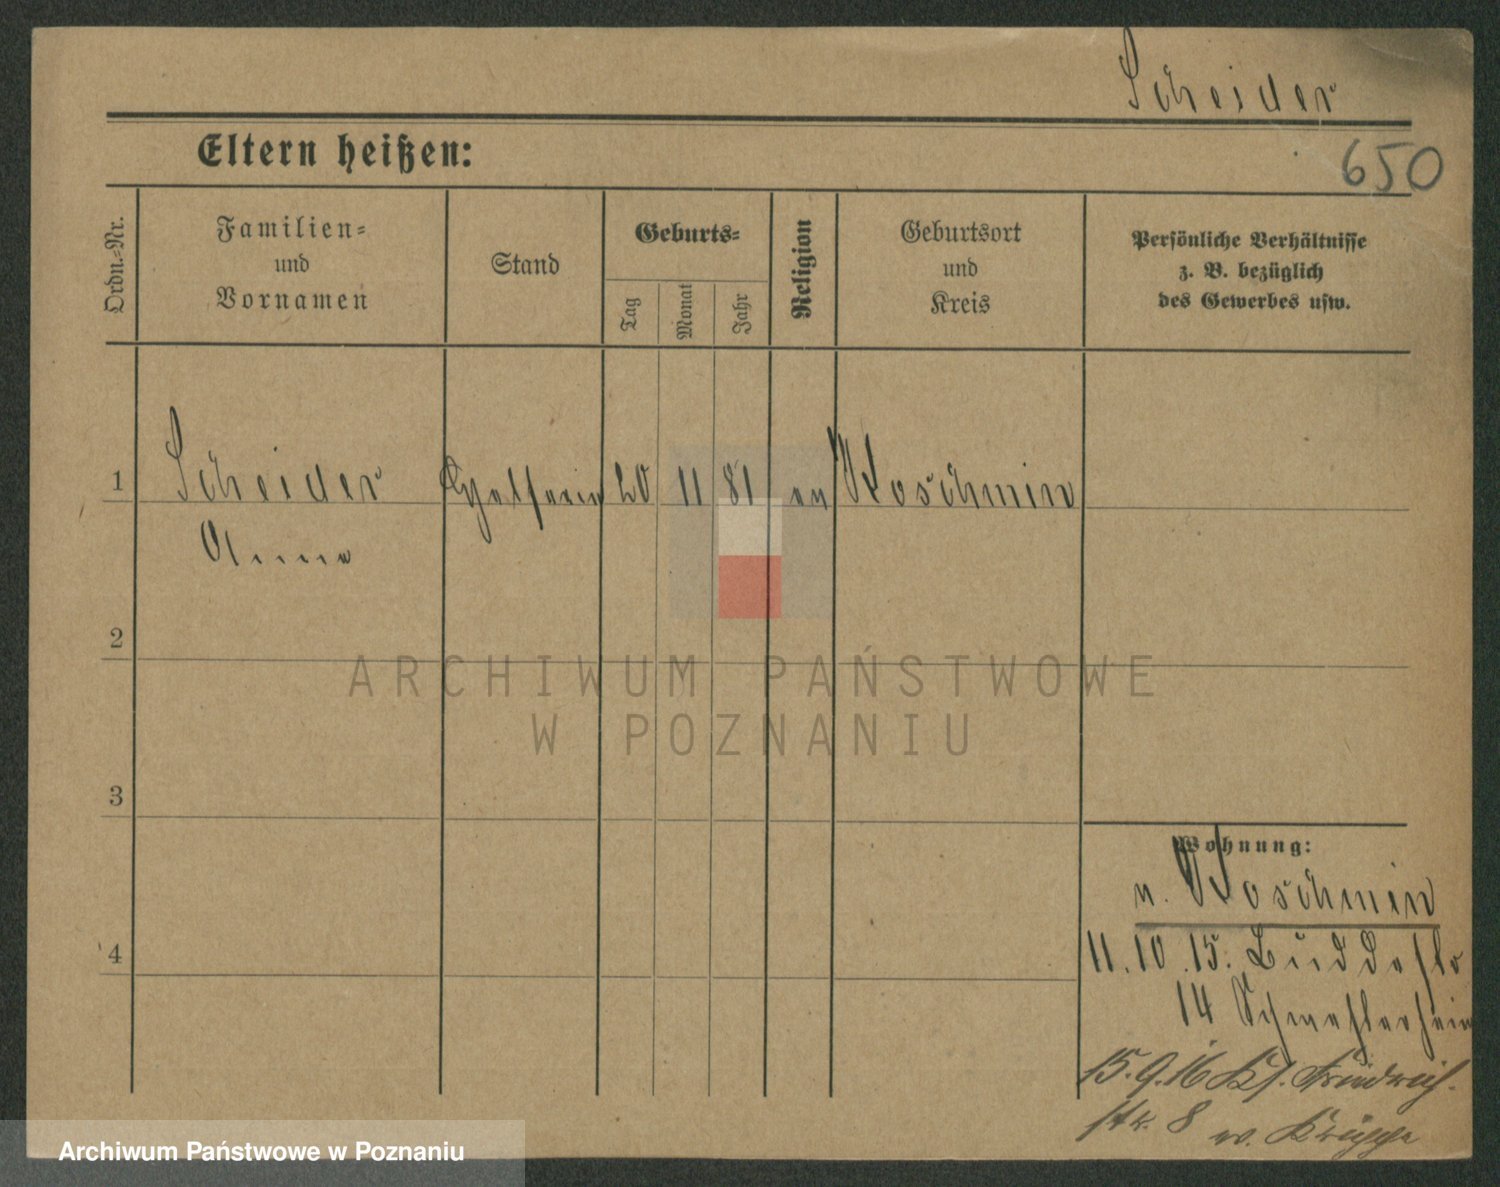 Scheider
650
Eltern heißen:
Ordn.-Nr.
Familien-
und
Vornamen
Stand
Geburts-
Tag
Monat
Jahr
Religion
Geburtsort
und
Kreis
Persönliche Verhältnisse
z. B. bezüglich
des Gewerbes usw.
1
Scheider
20
11
81
ev
Koschmin
Anna
2
3
4
Wohnung:
n. Koschmin
11.10.15. Buddestr
14 Schwesternheim
15.9.16 Kl. Friedrich-
str. 8 w. Krippe
ARCHIWUM PAŃSTWOWE
W POZNANIU
Archiwum Państwowe w Poznaniu